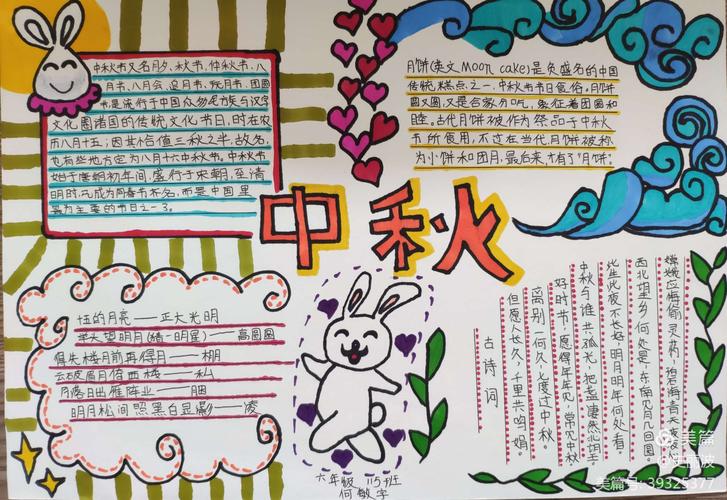 中秋节又名月夕、秋节、仲秋节、八
月节、八月会、追月节、玩月节、团圆
节,是流行于中国众多民族与汉字
文化圈诸国的传统文化节日,时在农
历八月十五;因其恰值三秋之半,故名,
也有些地方定为八月十六中秋节。中秋节
始于唐朝初年间,盛行于宋朝,至清
明时,已成为与春节齐名,而是中国里
最为主要的节日之一。
月饼(英文Moon cake)是负盛名的中国
传统糕点之一,中秋节节日食俗,月饼
圆又圆,又是合家分吃,象征着团圆和
睦。古代月饼被作为祭品于中秋
节所食用,不过在当代,月饼被称
为小饼和团月,最后来才有了月饼。
中秋
伍的月亮——正大光明
举头望明月(猜一明星)——高圆圆
得失楼月前再得月——棚
云破眉月倚西楼——私
月落日出雁阵业——
明月松间照黑白显影——凌
嫦娥应悔偷灵药,碧海青天夜夜
西北望乡何处是,东南见月几回圆。
此生此夜不长好,明月明年何处看。
中秋与谁共孤光,把盏凄然北望去
好时节,愿得年年,常见中秋
离别一何久,七度过中秋
但愿人长久,千里共婵娟。
古诗词
六年级 115班
何敏宇
美篇
美篇号:39325377